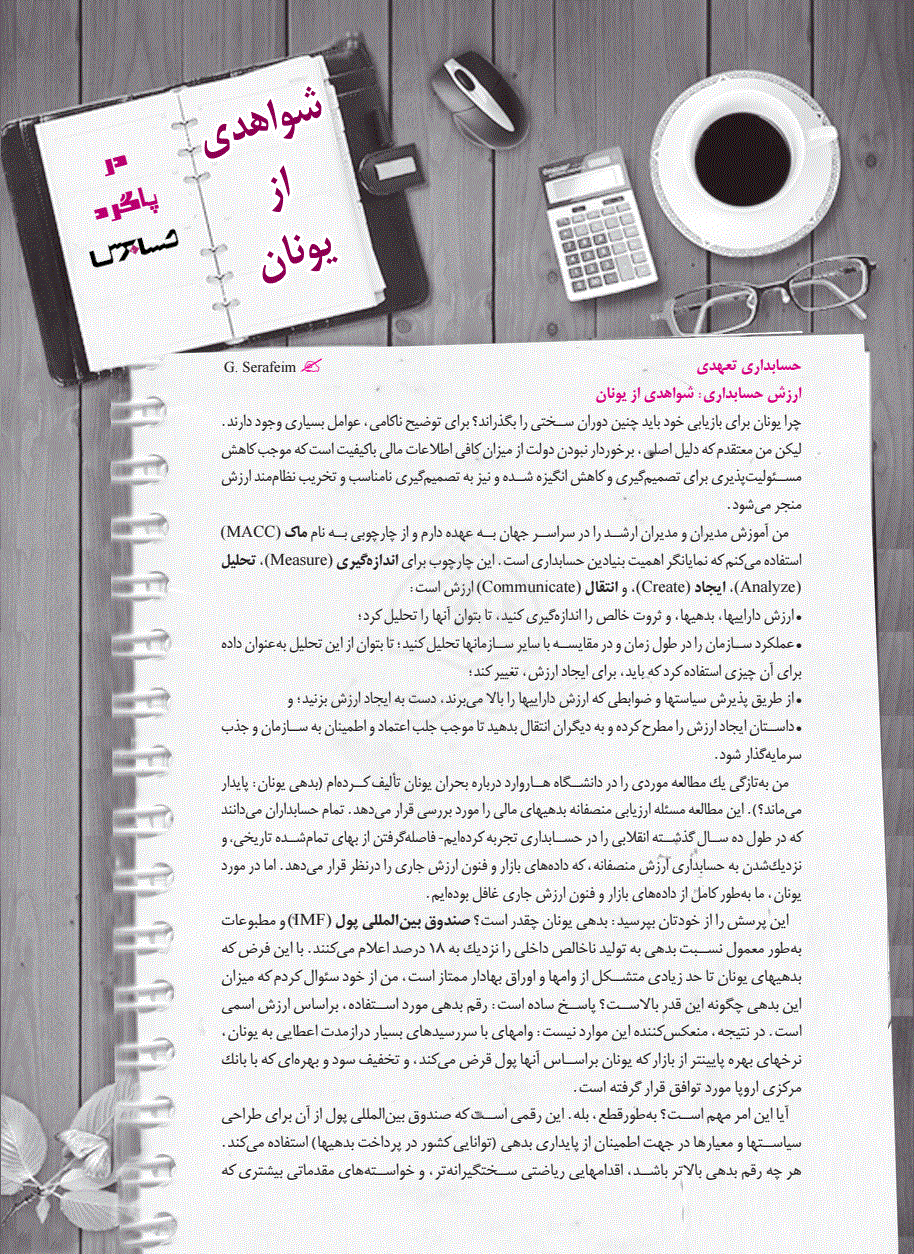 شواهدی
از
یونان
در
پاگرد
حسابرس
حسابداری تعهدی
G. Serafeim
ارزش حسابداری: شواهدی از یونان
چرا یونان برای بازیابی خود باید چنین دوران سختی را بگذراند؟ برای توضیح ناکامی، عوامل بسیاری وجود دارند.
لیکن من معتقدم که دلیل اصلی، برخوردار نبودن دولت از میزان کافی اطلاعات مالی باکیفیت است که موجب کاهش
مسئولیت‌پذیری برای تصمیم‌گیری و کاهش انگیزه شده و نیز به تصمیم‌گیری نامناسب و تخریب نظام‌مند ارزش
منجر می‌شود.
من آموزش مدیران و مدیران ارشد را در سراسر جهان به عهده دارم و از چارچوبی به نام ماک (MACC)
استفاده می‌کنم که نمایانگر اهمیت بنیادین حسابداری است. این چارچوب برای اندازه‌گیری (Measure)، تحلیل
(Analyze)، ایجاد (Create)، و انتقال (Communicate) ارزش است:
• ارزش داراییها، بدهیها، و ثروت خالص را اندازه‌گیری کنید، تا بتوان آنها را تحلیل کرد؛
• عملکرد سازمان را در طول زمان و در مقایسه با سایر سازمانها تحلیل کنید؛ تا بتوان از این تحلیل به‌عنوان داده
برای آن چیزی استفاده کرد که باید، برای ایجاد ارزش، تغییر کند؛
• از طریق پذیرش سیاستها و ضوابطی که ارزش داراییها را بالا می‌برند، دست به ایجاد ارزش بزنید؛ و
• داستان ایجاد ارزش را مطرح کرده و به دیگران انتقال بدهید تا موجب جلب اعتماد و اطمینان به سازمان و جذب
سرمایه‌گذار شود.
من به‌تازگی یك مطالعه موردی را در دانشگاه هاروارد درباره بحران یونان تألیف کرده‌ام (بدهی یونان: پایدار
می‌ماند؟). این مطالعه مسئله ارزیابی منصفانه بدهیهای مالی را مورد بررسی قرار می‌دهد. تمام حسابداران می‌دانند
که در طول ده سال گذشته انقلابی را در حسابداری تجربه کرده‌ایم- فاصله‌گرفتن از بهای تمام‌شده تاریخی، و
نزدیك‌شدن به حسابداری ارزش منصفانه، که داده‌های بازار و فنون ارزش جاری را درنظر قرار می‌دهد. اما در مورد
یونان، ما به‌طور کامل از داده‌های بازار و فنون ارزش جاری غافل بوده‌ایم.
این پرسش را از خودتان بپرسید: بدهی یونان چقدر است؟ صندوق بین‌المللی پول (IMF) و مطبوعات
به‌طور معمول نسبت بدهی به تولید ناخالص داخلی را نزدیك به ۱۸ درصد اعلام می‌کنند. با این فرض که
بدهیهای یونان تا حد زیادی متشکل از وامها و اوراق بهادار ممتاز است، من از خود سئوال کردم که میزان
این بدهی چگونه این قدر بالاست؟ پاسخ ساده است: رقم بدهی مورد استفاده، براساس ارزش اسمی
است. در نتیجه، منعکس‌کننده این موارد نیست: وامهای با سررسیدهای بسیار درازمدت اعطایی به یونان،
نرخهای بهره پایینتر از بازار که یونان براساس آنها پول قرض می‌کند، و تخفیف سود و بهره‌ای که با بانك
مرکزی اروپا مورد توافق قرار گرفته است.
آیا این امر مهم است؟ به‌طورقطع، بله. این رقمی است که صندوق بین‌المللی پول از آن برای طراحی
سیاستها و معیارها در جهت اطمینان از پایداری بدهی (توانایی کشور در پرداخت بدهیها) استفاده می‌کند.
هر چه رقم بدهی بالاتر باشد، اقدامهایی ریاضتی سختگیرانه‌تر، و خواسته‌های مقدماتی بیشتری که